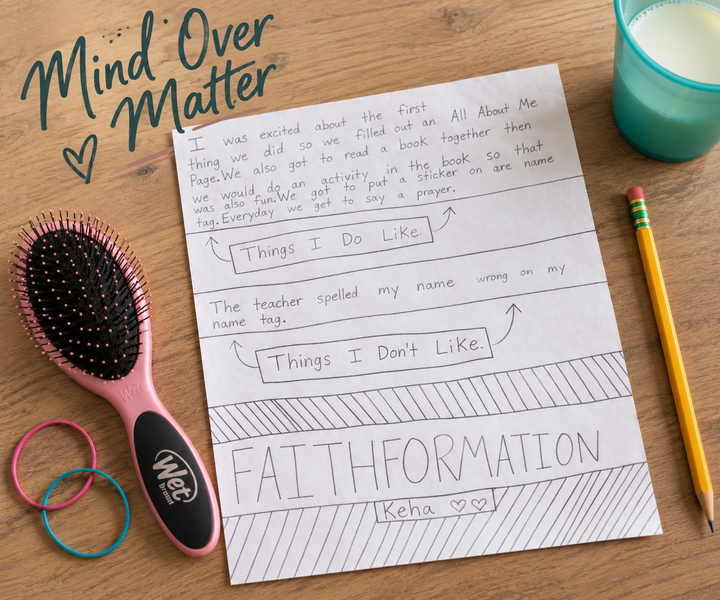 Mind Over
Matter
I was excited about the first
thing we did so we filled out an All About Me
Page. We also got to read a book together then
we would do an activity in the book so that
was also fun. We got to put a sticker on are name
tag. Everyday we get to say a prayer.
Things I Do Like.
The teacher spelled my name wrong on my
name tag.
Things I Don't Like.
FAITHFORMATION
Keha ♡♡
Wet